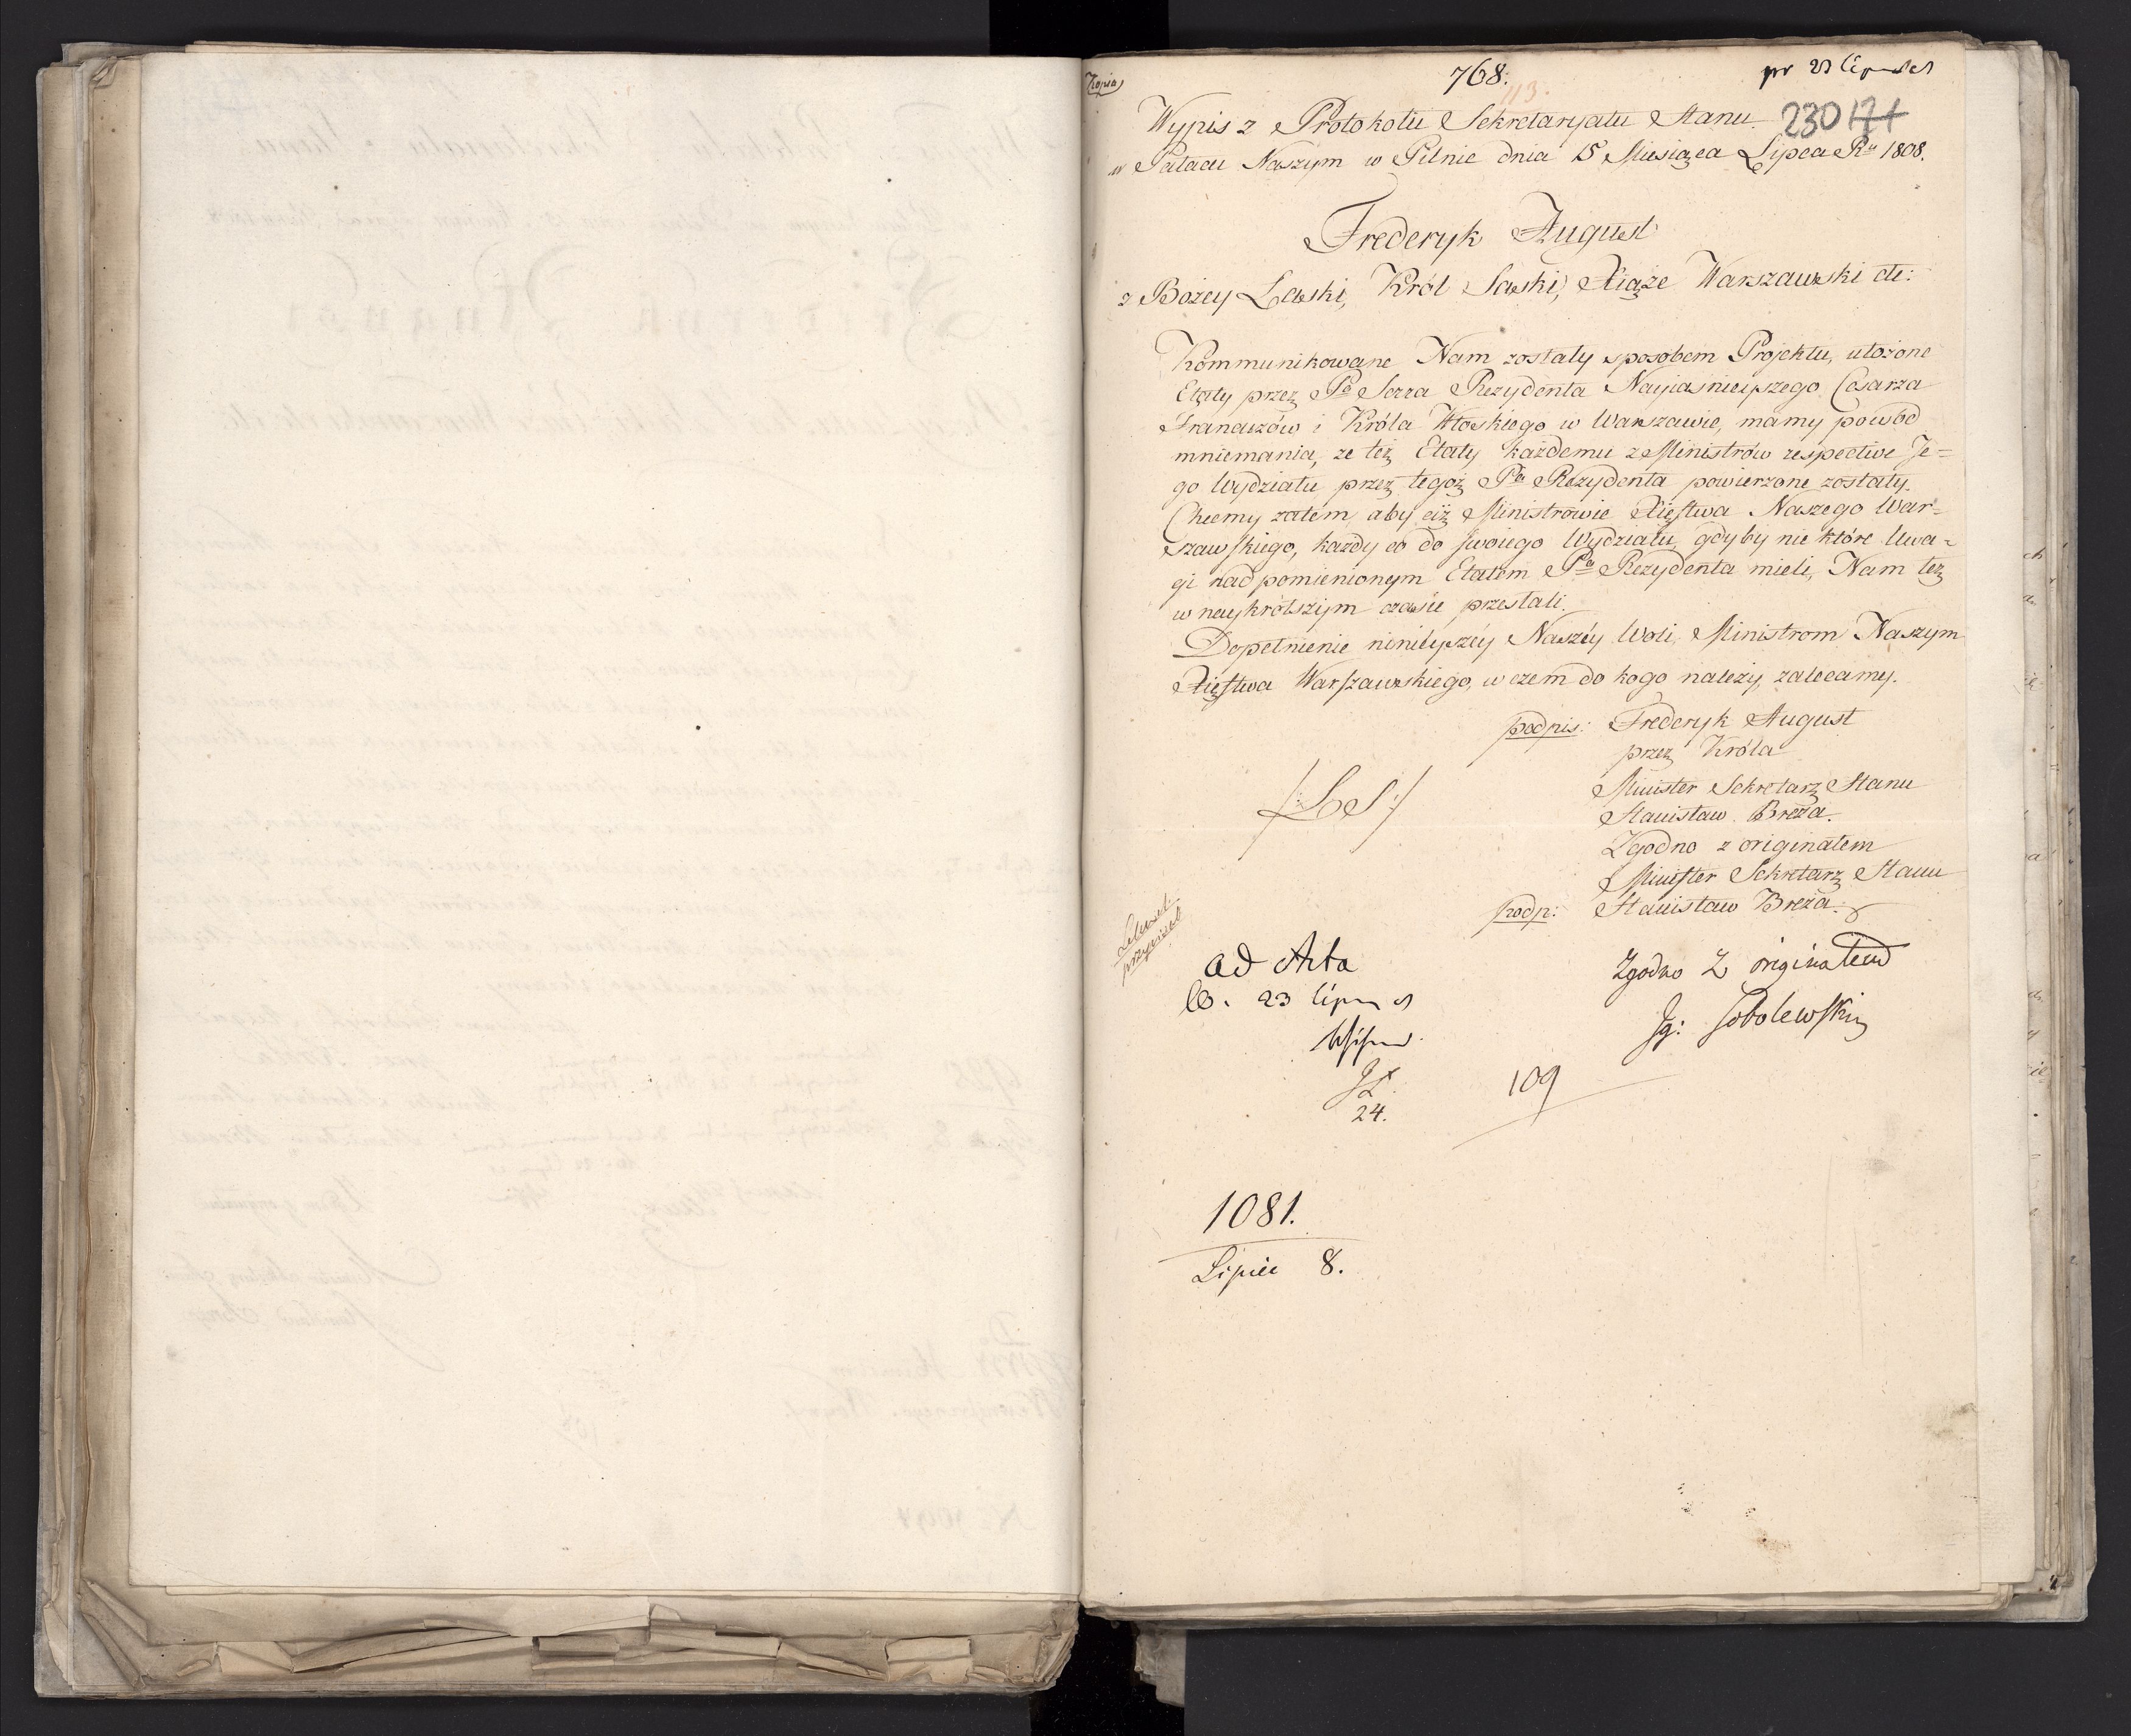 Kopia
768.
pr 23 lipca
113.
Wypis z Protokołu Sekretaryatu Stanu
230 171
w Pałacu Naszym w Pilnie dnia 15 Miesiąca Lipca Ru 1808.
Frederyk August
z Bożey Łaski, Król Saski, Xiąże Warszawski etc:
Kommunikowane Nam zostały sposobem Projektu, ułożone
Etaty przez Pa Serra Rezydenta Nayiaśnieyszego Cesarza
Francuzów i Króla Włoskiego w Warszawie, mamy powód
mniemania, że też Etaty każdemu z Ministrów respective Je=
go Wydziału przez tegoż Pa Rezydenta powierzone zostały.
Chcemy zatem, aby ciż Ministrowie Xięstwa Naszego War=
szawskiego, każdy co do swoiego Wydziału, gdyby nie które Uwa=
gi nad pomienionym Etatem Pa Rezydenta mieli, Nam też
w naykrótszym czasie przesłali.
Dopełnienie ninieyszéy Naszéy Woli, Ministrom Naszym
Xięstwa Warszawskiego, w czem do kogo należy, zalecamy.
podpis: Frederyk August
przez Króla
Minister Sekretarz Stanu
/:LS:/
Stanisław Breza.
Zgodno z originałem
Minister Sekretarz Stanu
podp: Stanisław Breza.
ad Acta
23 lipca
Zgodno z originałem
Jg: Sobolewski
24.
109
1081.
Lipiec 8.